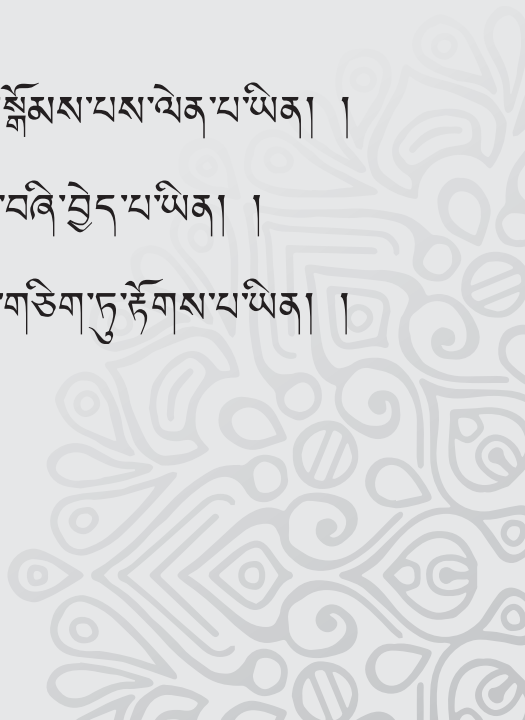 སྒོམས་པས་ལེན་པ་ཡིན། །
་བཞི་བྱེད་པ་ཡིན། །
་གཅིག་ཏུ་རྟོགས་པ་ཡིན། །